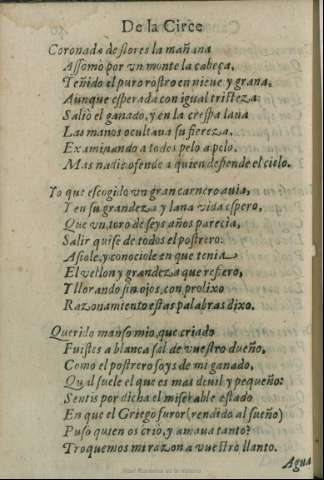 De la Circe
Coronado de flores la mañana
Assomò por vn monte la cabeça,
Teñido el puro rostro en nieue y grana,
Aunque esperada con igual tristeza:
Saliò el ganado, y en la crespa lana
Las manos ocultaua su fiereza,
Examinando a todos pelo a pelo,
Mas nadie ofende a quien defiende el cielo.
Yo que escogido vn gran carnero auia,
Y en su grandeza y lana vida espero,
Que vn toro de seys años parecia,
Salir quise de todos el postrero:
Asiole, y conociole en que tenia
El vellon y grandeza que refiero,
Y llorando sin ojos, con prolixo
Razonamiento estas palabras dixo.
Querido manso mio, que criado
Fuistes a blanca sal de vuestro dueño,
Como el postrero soys de mi ganado,
Qual suele el que es mas debil y pequeño:
Sentis por dicha el miserable estado
En que el Griego furor (rendido al sueño)
Puso quien os criò, y amaua tanto?
Troquemos mi razon a vuestro llanto.
Agua